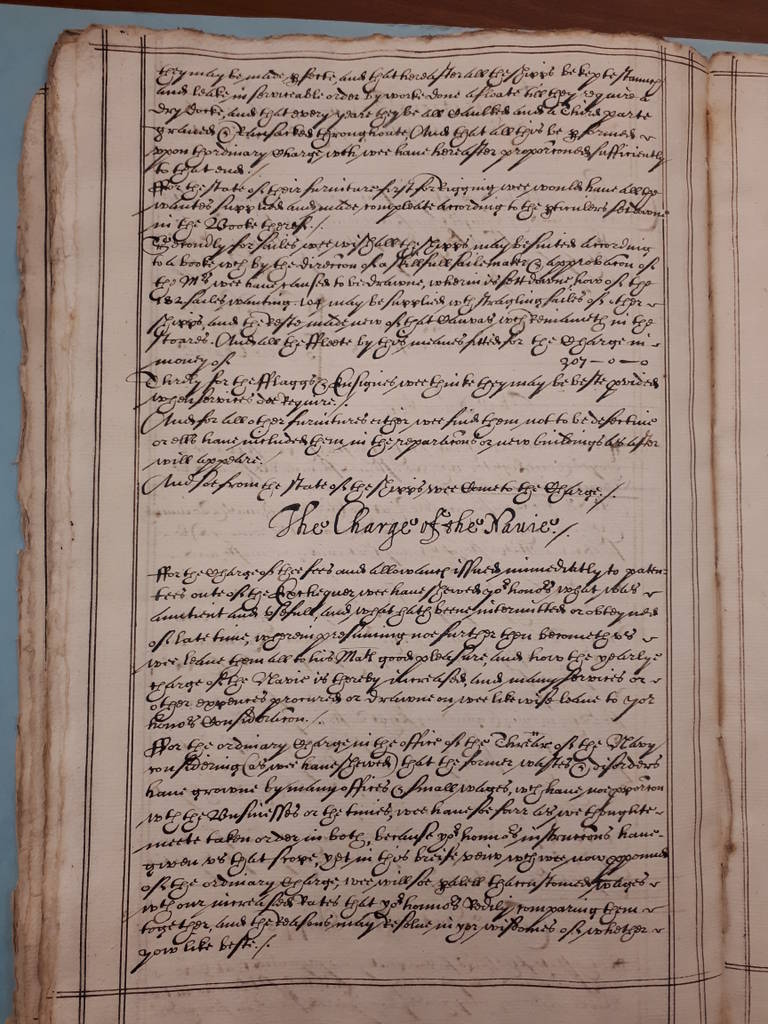 they may be made pfecte, and that hereafter all the shipps be kept staunch
and leake in serviceable order by worke done a floate till they require a
dry docke, and that every yeare they be all caulked and a Third parte
graved & Ransacked throughoute, And that all this be pformed
vpon thordinary Charge, wch wee haue hereafter proporconed sufficiently
to that end.
ffor the state of their furniture first for Rigging wee would haue all ye
wantes supplied and made compleate according to the pticulers sett downe
in the Booke thereof./.
Secondly for sailes wee wish all the shipps may be suited according
to a booke wch by the direccon of a skillfull sailemaker & approbacon of
the Mrs wee haue caused to be drawne, wherin is sett downe how of the
sailes wanting, 104 may be supplied wth stragling sailes of other
shipps, and the reste made new of that Canvas wch Remaineth in the
stoares. And all the ffleete by this meanes fitted for the Charge in
money of 207 - 0 - 0
Thirdly for the fflaggs & Ensignes wee thinke they may be beste pvided
when services doe require./.
And for all other furnitures either wee find them not to be defective
or els haue included them in the reparacons or new buildings as after
will appeare.
And soe from the state of the shipps wee come to the Charge./.
The Charge of the Navie./.
ffor the Charge of the fees and allowances issued immediatly to paten-
tees oute of the Exchequer wee haue shewed yor honors what was
auntient and vsefull, and what hath beene intermitted or obteyned
of late time, wherein presuming noe further then becometh vs
wee leaue them all to his Mats good pleasure, and how the yearly
charge of the Navie is thereby increased, and many services or
other expences procured or drawne on wee likewise leaue to yor
honors Consideracon./.
ffor the ordinary Charge in the office of the Thrēr of the Navy
considering (as wee haue shewed) that the former wastes & disorders
haue growne by many offices & small wages, wch haue noe pporcon
wth the Businesses or the times, wee haue soe farr as wee thought
meete taken order in both, because yor honnors instruccons haue
given vs that scope, yet in this breife veiw wch wee now ppound
of the ordinary Charge, wee will soe palell thaccustomed wages
wth our increased Rates that yor honnors Redily comparing them
together, and the reasons may resolve in yor wisdomes of whether
yow like beste./.